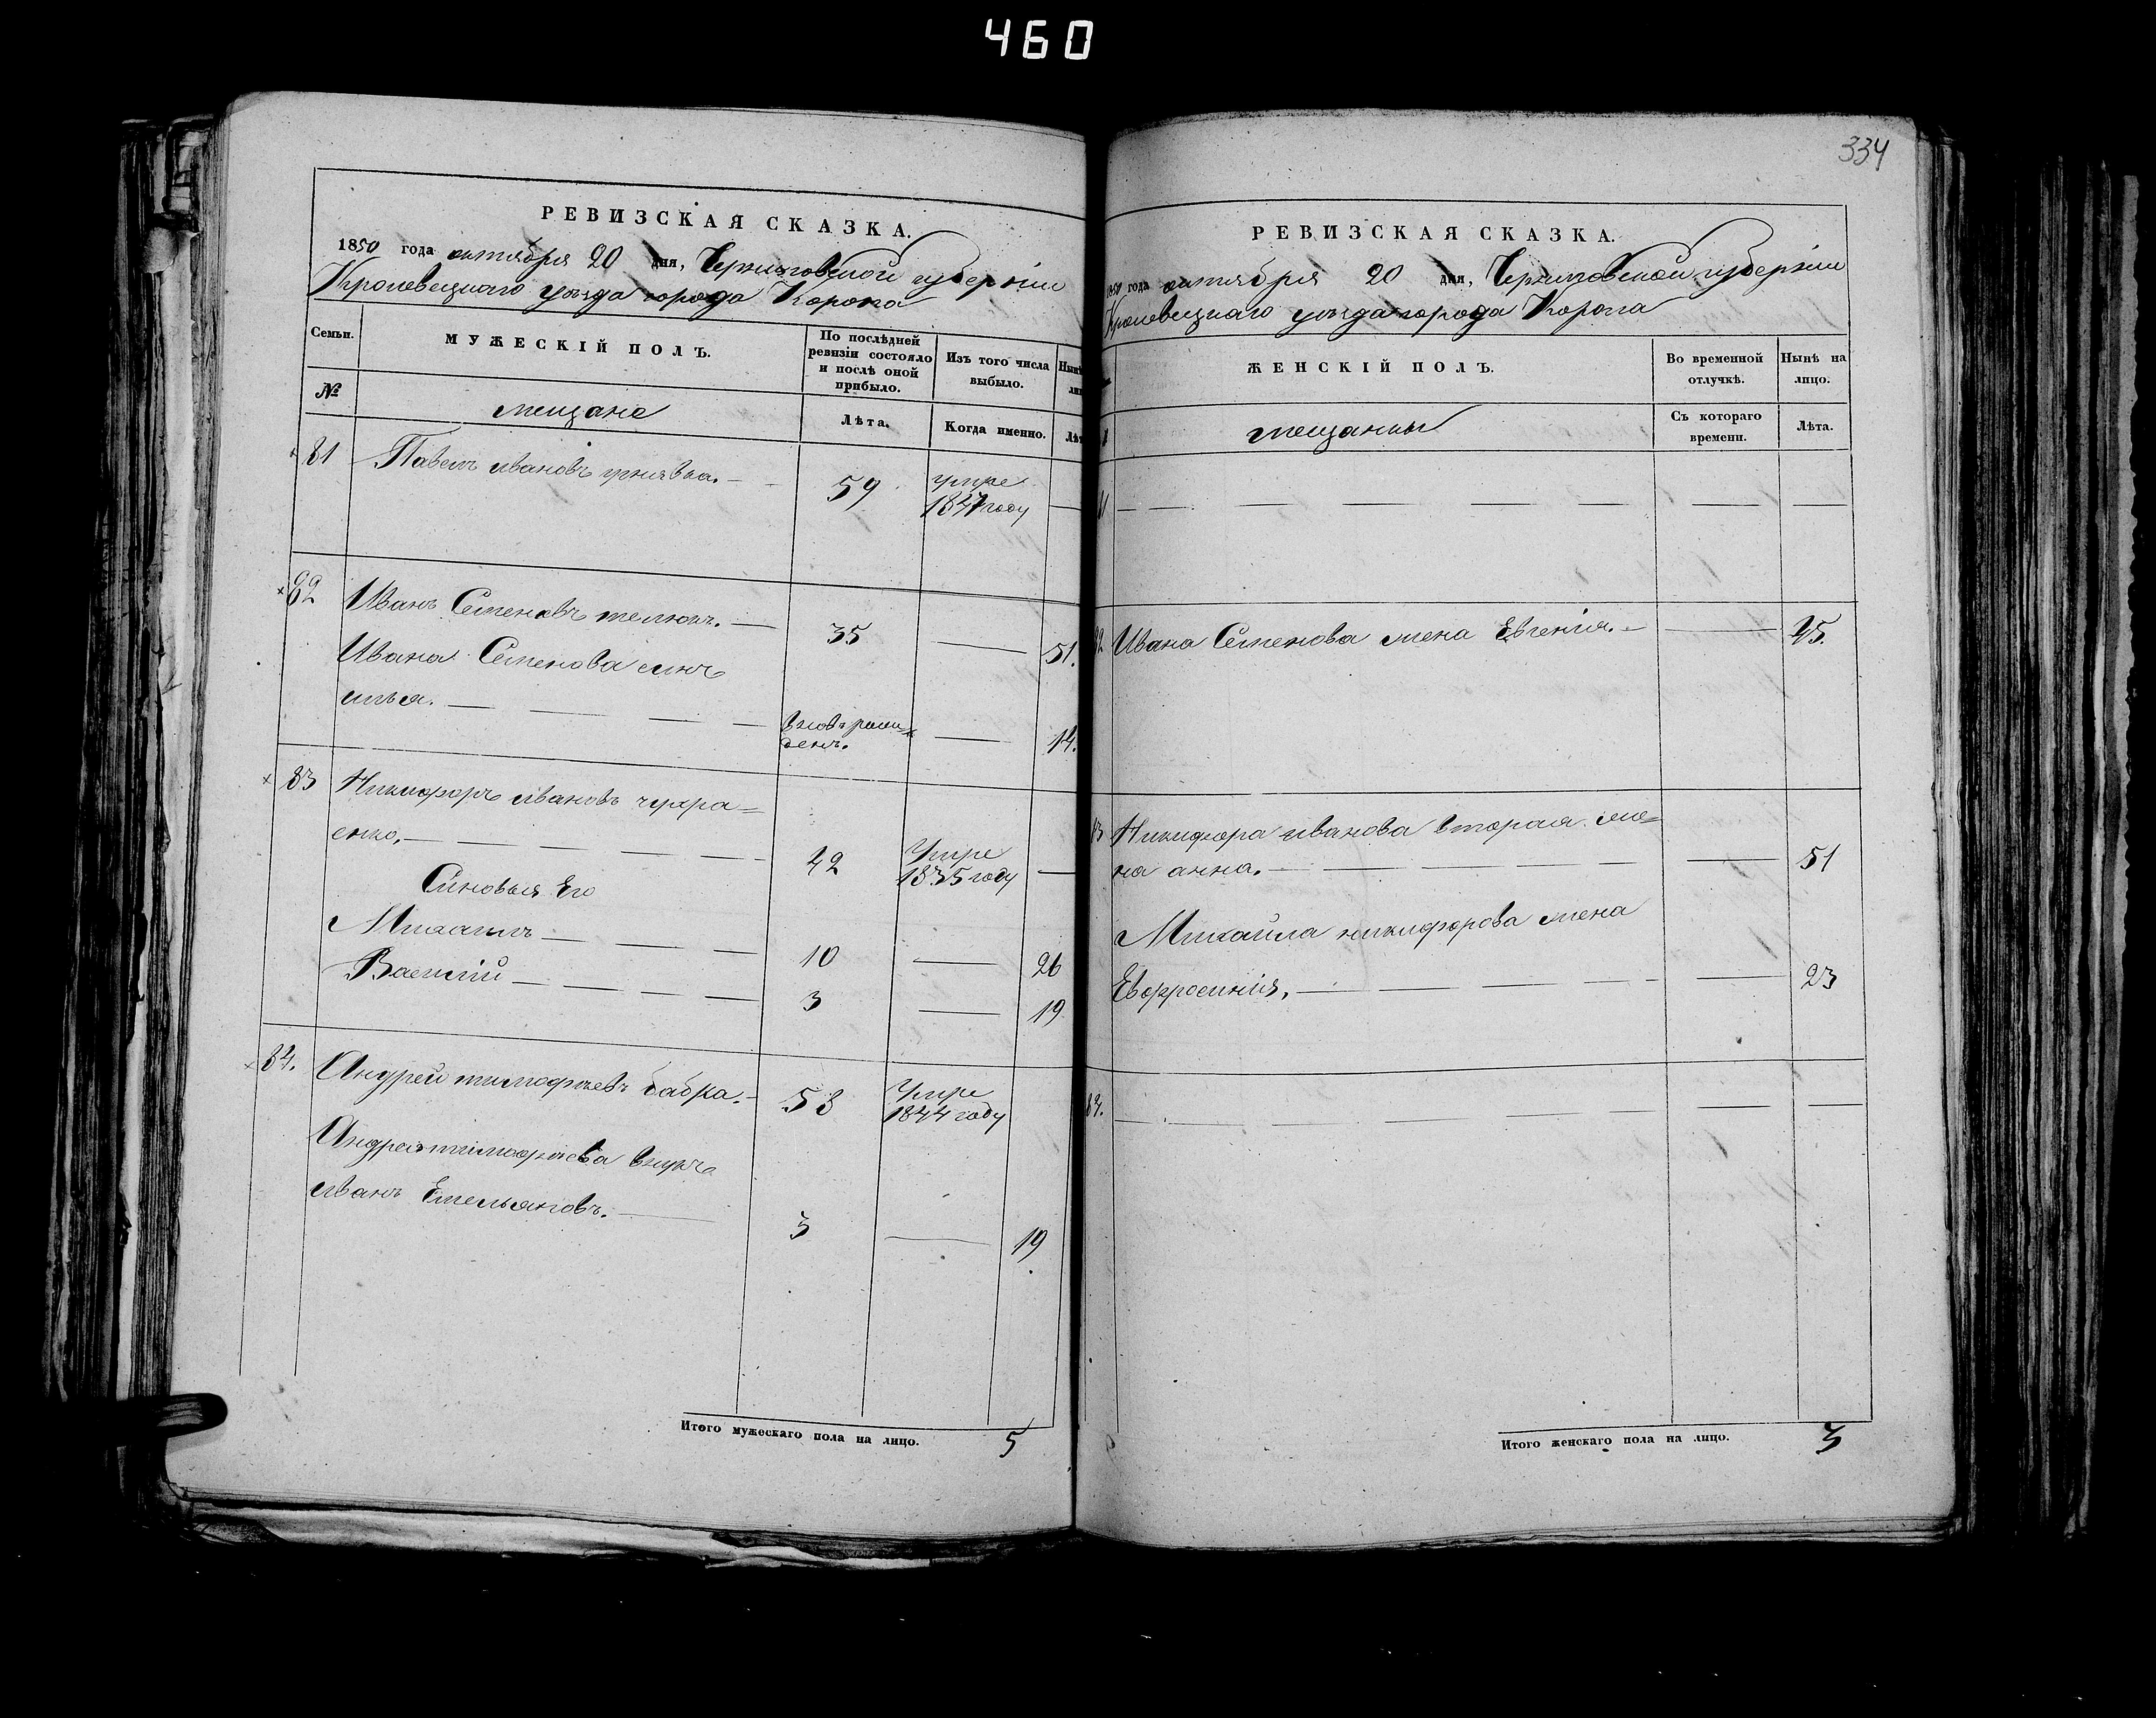 460
334
РЕВИЗСКАЯ СКАЗКА.
1850 года октября 20 дня, Черниговской губерніи
Кролевецкаго уѣзда города Коропа
Семьи.
МУЖЕСКІЙ ПОЛЪ.
По послѣдней ревизіи состояло и послѣ оной прибыло.
Изъ того числа выбыло.
№
мещане
Лѣта.
Когда именно.
81 Павелъ ивановъ 59 умре 1847 году —
82 Иванъ Семеновъ 35 — 51.
Ивана Семенова синъ
илья. — вновь рож=денъ. — 14.
83 Никифоръ ивановъ чухра=
енко. — 42 Умре 1835 году —
Синовья Его
Михаилъ — 10 — 26
Василій — 3 — 19
84. Андрей тимофѣевъ бабка. 53 Умре 1844 году
Андрея тимофѣева внукъ
иванъ Емельяновъ. — 3 — 19
Итого мужескаго пола на лицо. 5
РЕВИЗСКАЯ СКАЗКА.
1850 года октября 20 дня, Черниговской губерніи
Кролевецкаго уѣзда города Коропа
ЖЕНСКІЙ ПОЛЪ.
Во временной отлучкѣ.
Нынѣ на лицо.
мещанки
Съ котораго времени.
Лѣта.
— — —
Ивана Семенова жена Евгенія. — — 45.
Никифора иванова вторая же=
на анна. — — 51
Михайла никифорова жена
Евфросинія, — — 23
84. — — —
Итого женскаго пола на лицо. 3